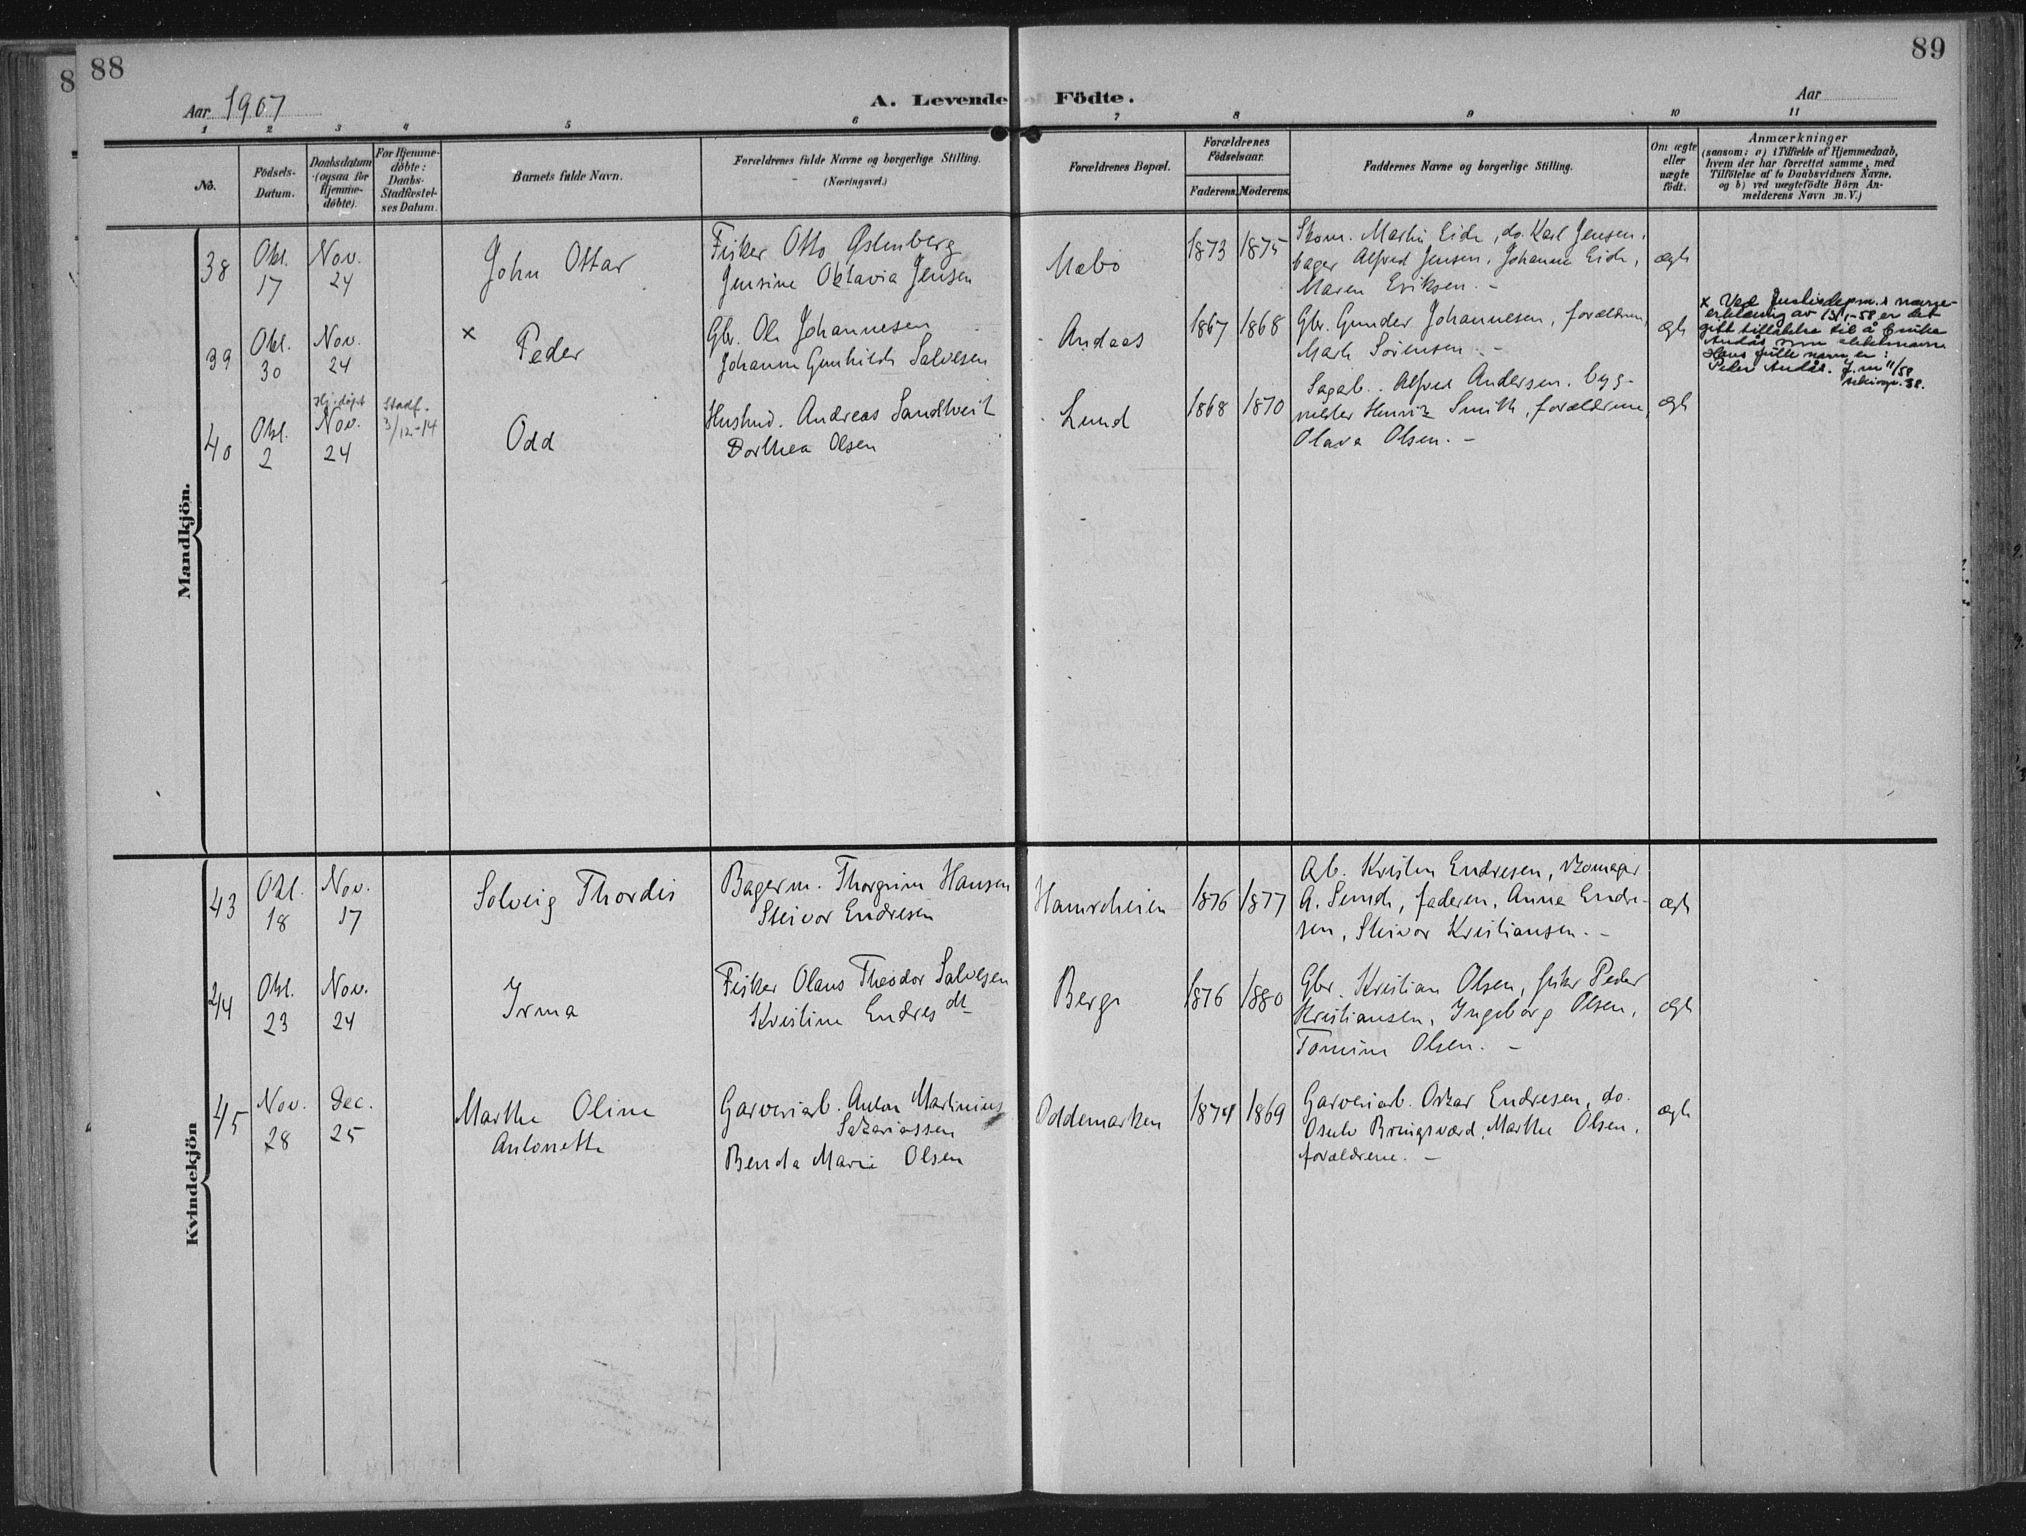 88
89
Aar 1907
A. Levende Födte.
Aar
1 2 3 4 5 6 7 8 9 10 11
No.
Födsels-
Datum.
Daabsdatum
(ogsaa for
Hjemme-
døbte).
For Hjemme-
døbte:
Daabs-
Stadfæstel-
ses Datum.
Barnets fulde Navn.
Forældrenes fulde Navne og borgerlige Stilling.
(Næringsvei.)
Forældrenes Bopæl.
Forældrenes
Födselsaar.
Faderens. Moderens.
Faddernes Navne og borgerlige Stilling.
Om ægte
eller
uægte
födt.
Anmærkninger
(saasom: a) i Tilfælde af Hjemmedaab,
hvem der har forrettet samme, med
Tilföielse af to Daabsvidners Navne,
og b) ved uægtefödte Börn An-
melderens Navn m. V.)
Mandkjön.
38
Okt.
17
Nov.
24
John Ottar
Fisker Otto Østenberg
Jensine Oktavia Jensen
Mæbø
1873 1875
Skom. Martin Eide, do. Karl Jensen,
bager Alfred Jensen, Johanne Eide,
Maren Eriksen. -
ægte
39
Okt.
30
Nov.
24
x Peder
Gbr. Ole Johannesen
Johanne Gunhilde Salvesen
Andaas
1867 1868
Gbr. Gunder Johannesen, forældrene,
Marte Sörensen. -
ægte
x Ved Justisdepm.s navne-
erklæring av 13/1-58 er det
gitt tillatelse til å bruke
Andås som slektsnavn
Hans fulle navn er:
Peder Andås.
40
Okt.
2
Hj.døpt
Nov.
24
Stadf.
3/12-14
Odd
Husmd. Andreas Sandtveit
Dorthea Olsen
Lund
1868 1870
Sagarb. Alfred Andersen, byg-
mester Henrik Smith, forældrene,
Olava Olsen. -
ægte
Kvindekjön
43
Okt.
18
Nov.
17
Solveig Thordis
Bagerm. Thorgrim Hansen
Steivor Endresen
Hamreheien
1876 1877
Arb. Kristen Endresen, skomager
A. Sunde, faderen, Anne Endre-
sen, Steivor Kristiansen. -
ægte
44
Okt.
23
Nov.
24
Irma
Fisker Olaus Theodor Salvesen
Kristine Endresdt
Berge
1876 1880
Gbr. Kristian Olsen, fisker Peder
Kristiansen, Ingeborg Olsen,
Tomine Olsen. -
ægte
45
Nov.
28
Dec.
25
Marthe Oline
Antonette
Garveriarb. Anton Martinius
Sakariassen
Benda Marie Olsen
Oddemarken
1874 1869
Garveriarb. Oskar Endresen, do.
Osulv Bringsværd, Marthe Olsen,
forældrene. -
ægte